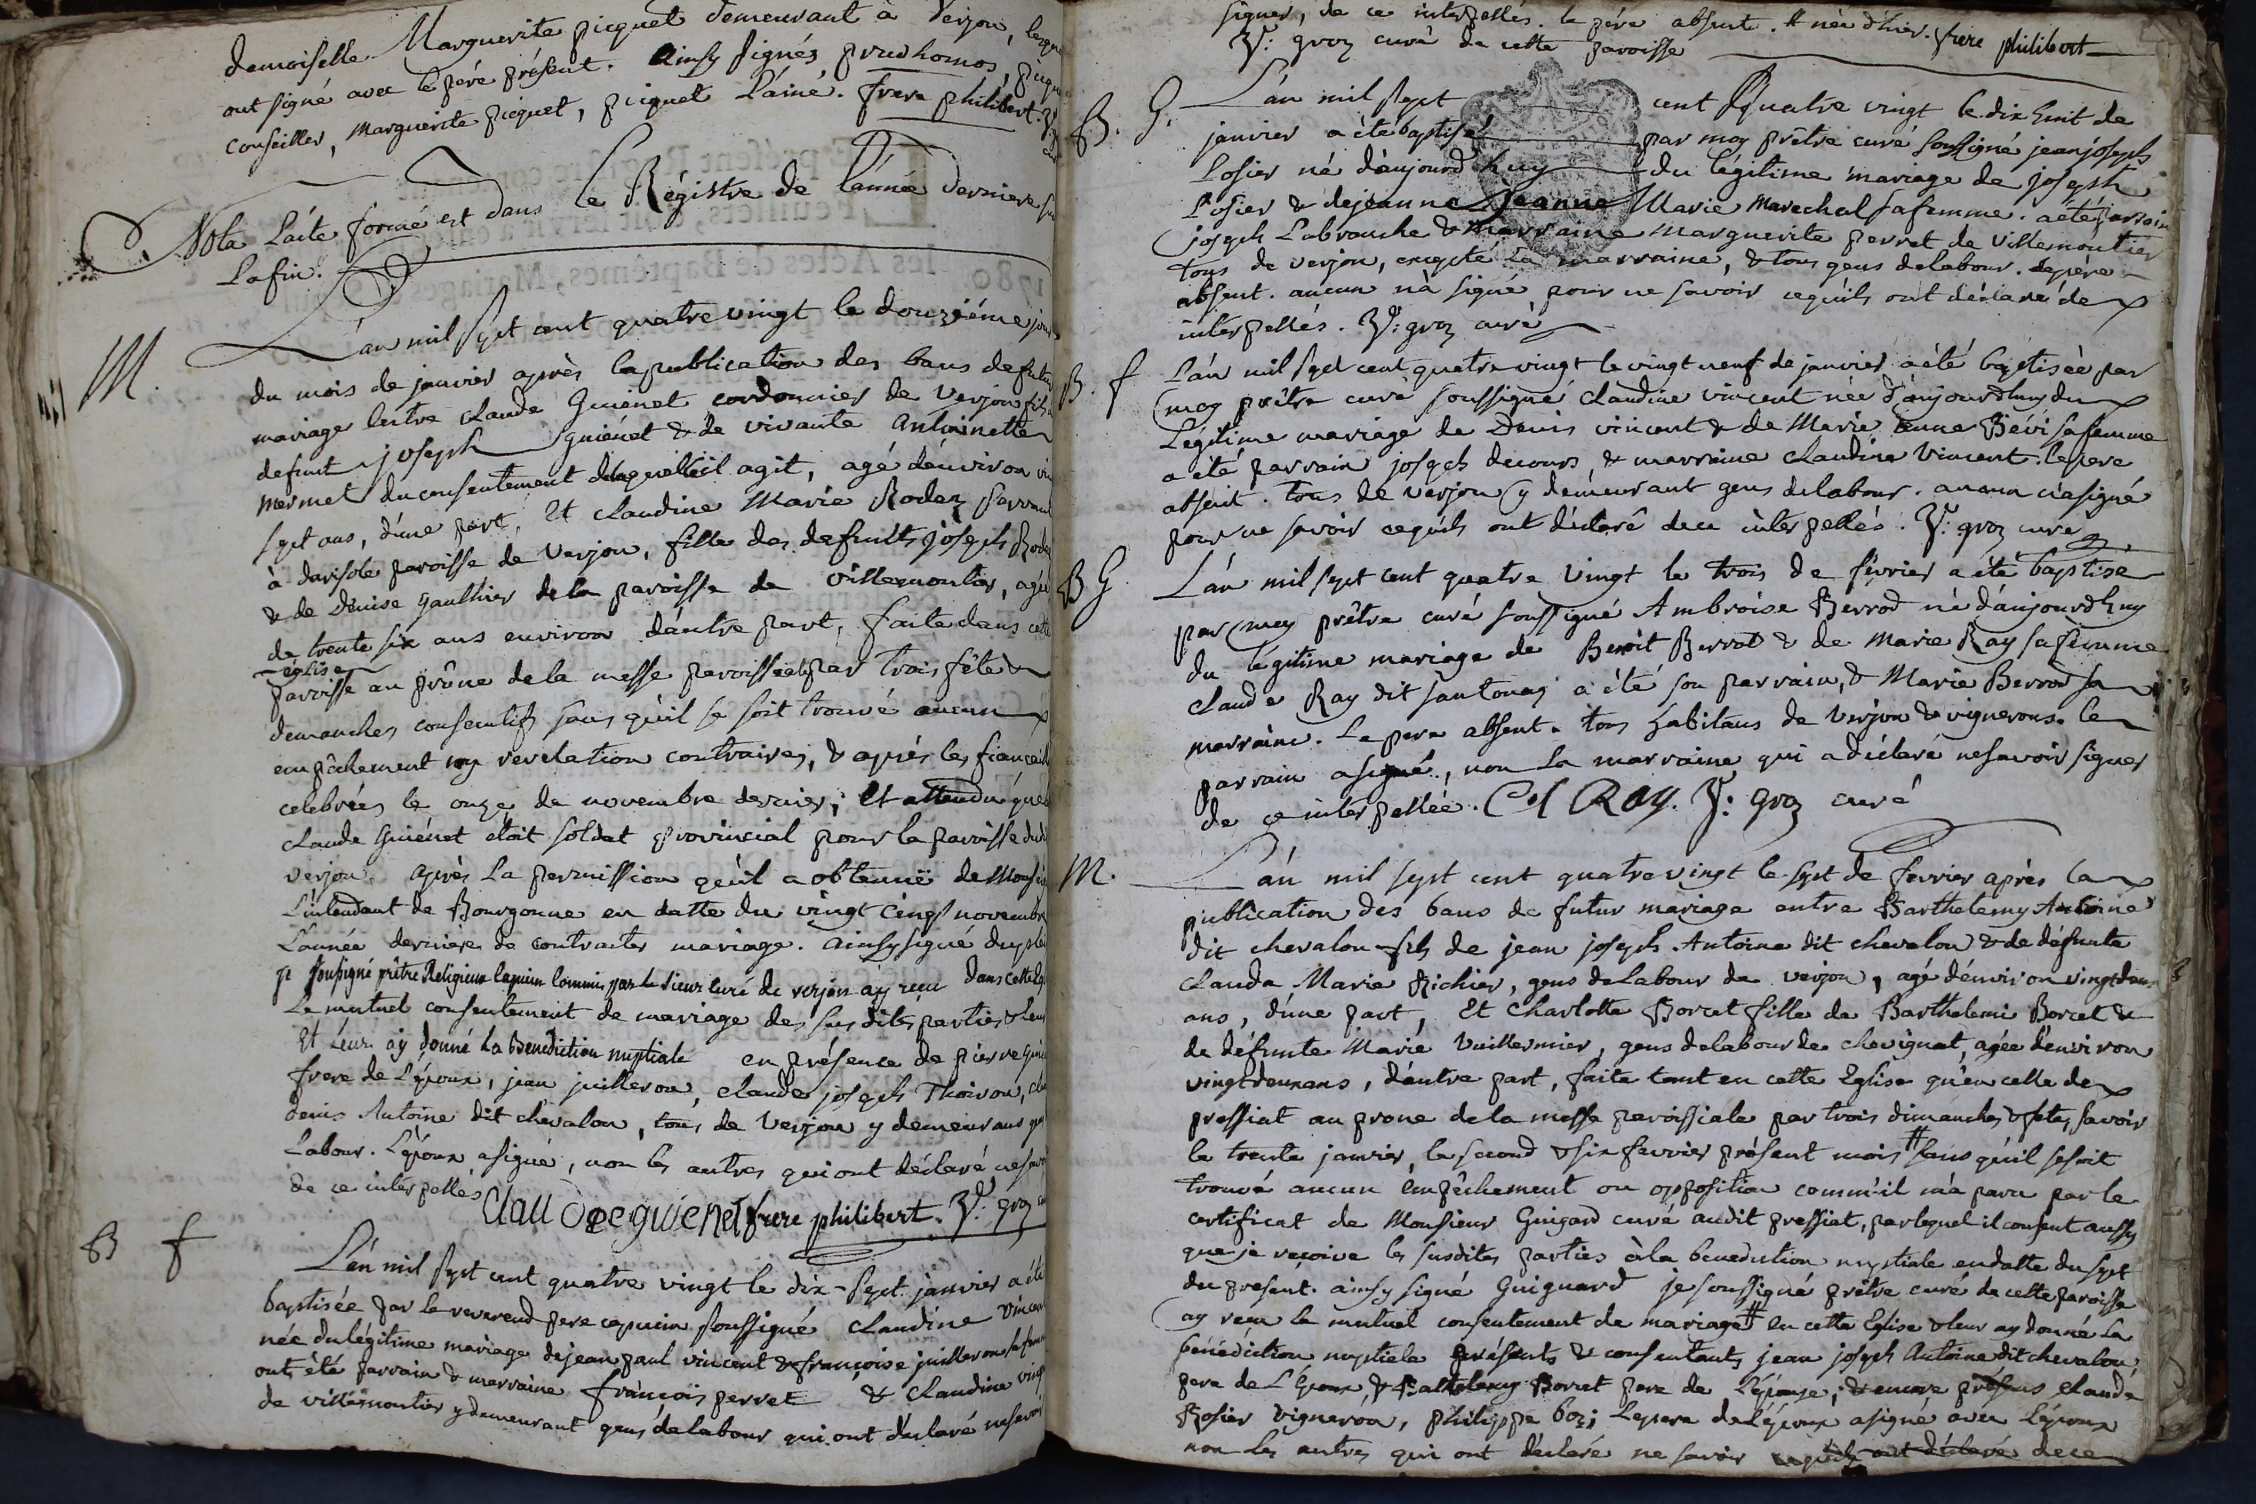 demoiselle Marguerite picquet demeurant à Verjon,
ont signé avec le père présent. Ainsy signés prudhomos,
conseiller, Marguerite picquet, picquet L'ainé. frere philibert.
Nota L'acte formé est dans le Régistre de L'année derniere
La fin.
M. L'an mil sept cent quatre vingt le douzième jour
du mois de janvier après la publication des bans de futur
mariage entre claude Guienet cordonnier de Verjon fils
defunt joseph guiénet & de vivante Antoinette
Mermet du consentement de laquelle il agit, agé d'environ
sept ans, d'une part, Et claudine Marie Rodez servante
à darisole paroisse de Verjon, fille des defunts joseph
& de Denise Gaulthier de la paroisse de Villemoutier, agée
de trente six ans environ d'autre part, faite dans cette
église
paroisse au prône de la messe paroissiale par trois fête &
dimanches consecutifs sans qu'il se soit trouvé aucun
empâchement ny revelation contraires, & après les fiancailles
celebrées le onze de novembre dernier; Et attendu que
claude guiénet étoit soldat provincial pour la paroisse dudit
verjon, après La permission qu'il a obtenuë de Monsieur
L'intendant de Bourgonne en datte du vingt cinq novembre
L'année derniére de contracter mariage. ainsy signé dupleix
je soussigné prêtre Religieux capucin commis par le sieur curé de verjon ay reçu dans cette
Le mutuel consentement de mariage des susdites parties
Et Leur ay donné La Benediction nuptiale en présence de pierre
frere de L'époux, jean juilleron, claude joseph Thoiron,
denis Antoine dit chevalon, tous de Verjon y demeurans
Labour. L'époux a signé, non les autres qui ont déclaré
de ce interpellés Claude guienet frere philibert. J: groz
B f L'an mil sept cent quatre vingt le dix-sept janvier a été
baptisée par Le reverend pere capucin soussigné claudine Vincent
née du légitime mariage de jean paul vincent & françoise juilleron sa femme
ont été parrain & marraine françois perret & claudine
de villemoutier y demeurant gens de labour qui ont déclaré
signer, de ce interpellés. le pére absent. # née d'hier. frere philibert
J: groz curé de cette paroisse
B. G. L'an mil sept cent Quatre vingt le dix huit de
janvier a été baptisé par moy prêtre curé soussigné jean joseph
Rosier né d'aujourd'huy du légitime mariage de joseph
Rosier & de jeanne Jeanne Marie Marechal sa femme. a été parrain
joseph Labranche & marraine Marguerite perret de Villemoutier
tous de verjon, excepté la marraine, & tous gens de labour. le père
absent. aucun n'a signé pour ne savoir ce qu'ils ont déclaré de
interpellés. J: groz curé
B. f L'an mil sept cent quatre vingt le vingt neuf de janvier a été baptisée par
moy prêtre curé soussigné claudine vincent née d'aujourdhuy du
Legitime mariage de Denis vincent & de Marie Anne Bévi sa femme
a été parrain joseph decours, & marraine claudine Vincent. le pere
absent. tous de verjon y demeurant gens de labour. aucun n'a signé
pour ne savoir ce qu'ils ont déclaré de ce interpellés. J: groz curé
B G L'an mil sept cent quatre vingt le trois de février a été baptisé
par moy prêtre curé soussigné Ambroise Berrod né d'aujourdhuy
du légitime mariage de Benoit Berrod & de Marie Ray sa femme
claude Ray dit santonay a été son parrain, & Marie Berrod sa
marraine. Le pere absent. tous habitans de Verjon & vignerons. le
parrain a signé, non la marraine qui a déclaré ne savoir signer
de ce interpellée. Cl RAy. J: groz curé
M. L'an mil sept cent quatre vingt le sept de fevrier après la
publication des bans de futur mariage entre Barthelemy Antoine
dit chevalon fils de jean joseph Antoine dit chevalon & de défunte
Claude Marie Richier, gens de Labour de verjon, agé d'environ vingt deux
ans, d'une part, Et Charlotte Borcet fille de Barthelemi Borcet &
de défunte Marie Vuillermier, gens de labour de chevignat, agée d'environ
vingt deux ans, d'autre part, faite tant en cette Eglise qu'en celle de
pressiat au prone de la messe paroissiale par trois dimanches & fetes, savoir
le trente janvier, le second & six fevrier présent mois # sans qu'il se soit
trouvé aucun empêchement ou opposition comm'il m'a paru par le
certificat de Monsieur Guigard curé audit pressiat, par lequel il consent aussy
que je reçoive les susdites parties à la benediction nuptiale en datte du sept
du present. ainsy signé Guiguard je soussigné prêtre curé de cette paroisse
ay recu le mutuel consentement de mariage # en cette Eglise & leur ay donné La
bénédiction nuptiale présents & consentants, jean joseph Antoine dit chevalon
pere de L'Epoux & Barthelemy Borcet pere de L'épouse; & encore présens claude
Rosier vigneron, philippe boz; Le pere de L'époux a signé avec L'époux
non les autres qui ont déclaré ne savoir ce qu'ils ont déclaré de ce